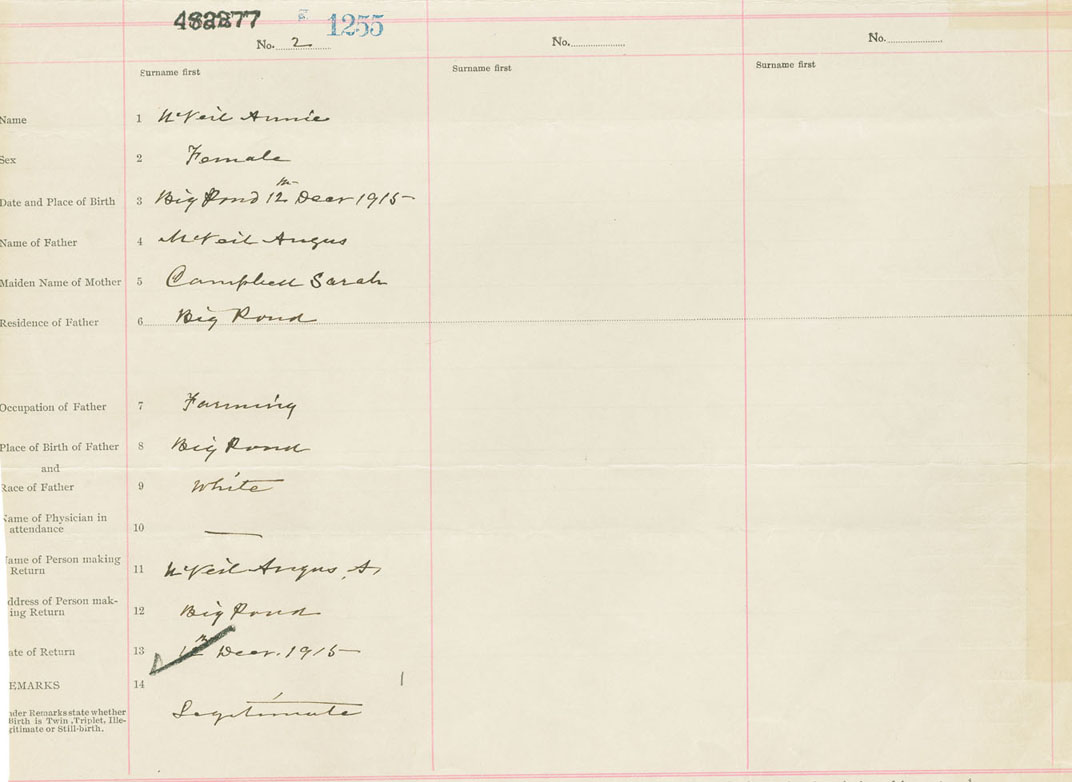 1255
No. 2 No. No.
Surname first Surname first Surname first
Name 1 McNeil Annie
Sex 2 Female
Date and Place of Birth 3 Big Pond 12th Decr 1915
Name of Father 4 McNeil Angus
Maiden Name of Mother 5 Campbell Sarah
Residence of Father 6 Big Pond
Occupation of Father 7 Farming
Place of Birth of Father 8 Big Pond
and
Race of Father 9 White
Name of Physician in
attendance 10 —
Name of Person making
Return 11 McNeil Angus, A
ddress of Person mak-
ing Return 12 Big Pond
ate of Return 13 Decr. 1915
EMARKS 14
nder Remarks state whether
Birth is Twin, Triplet, Ille-
gitimate or Still-birth.
Legitimate